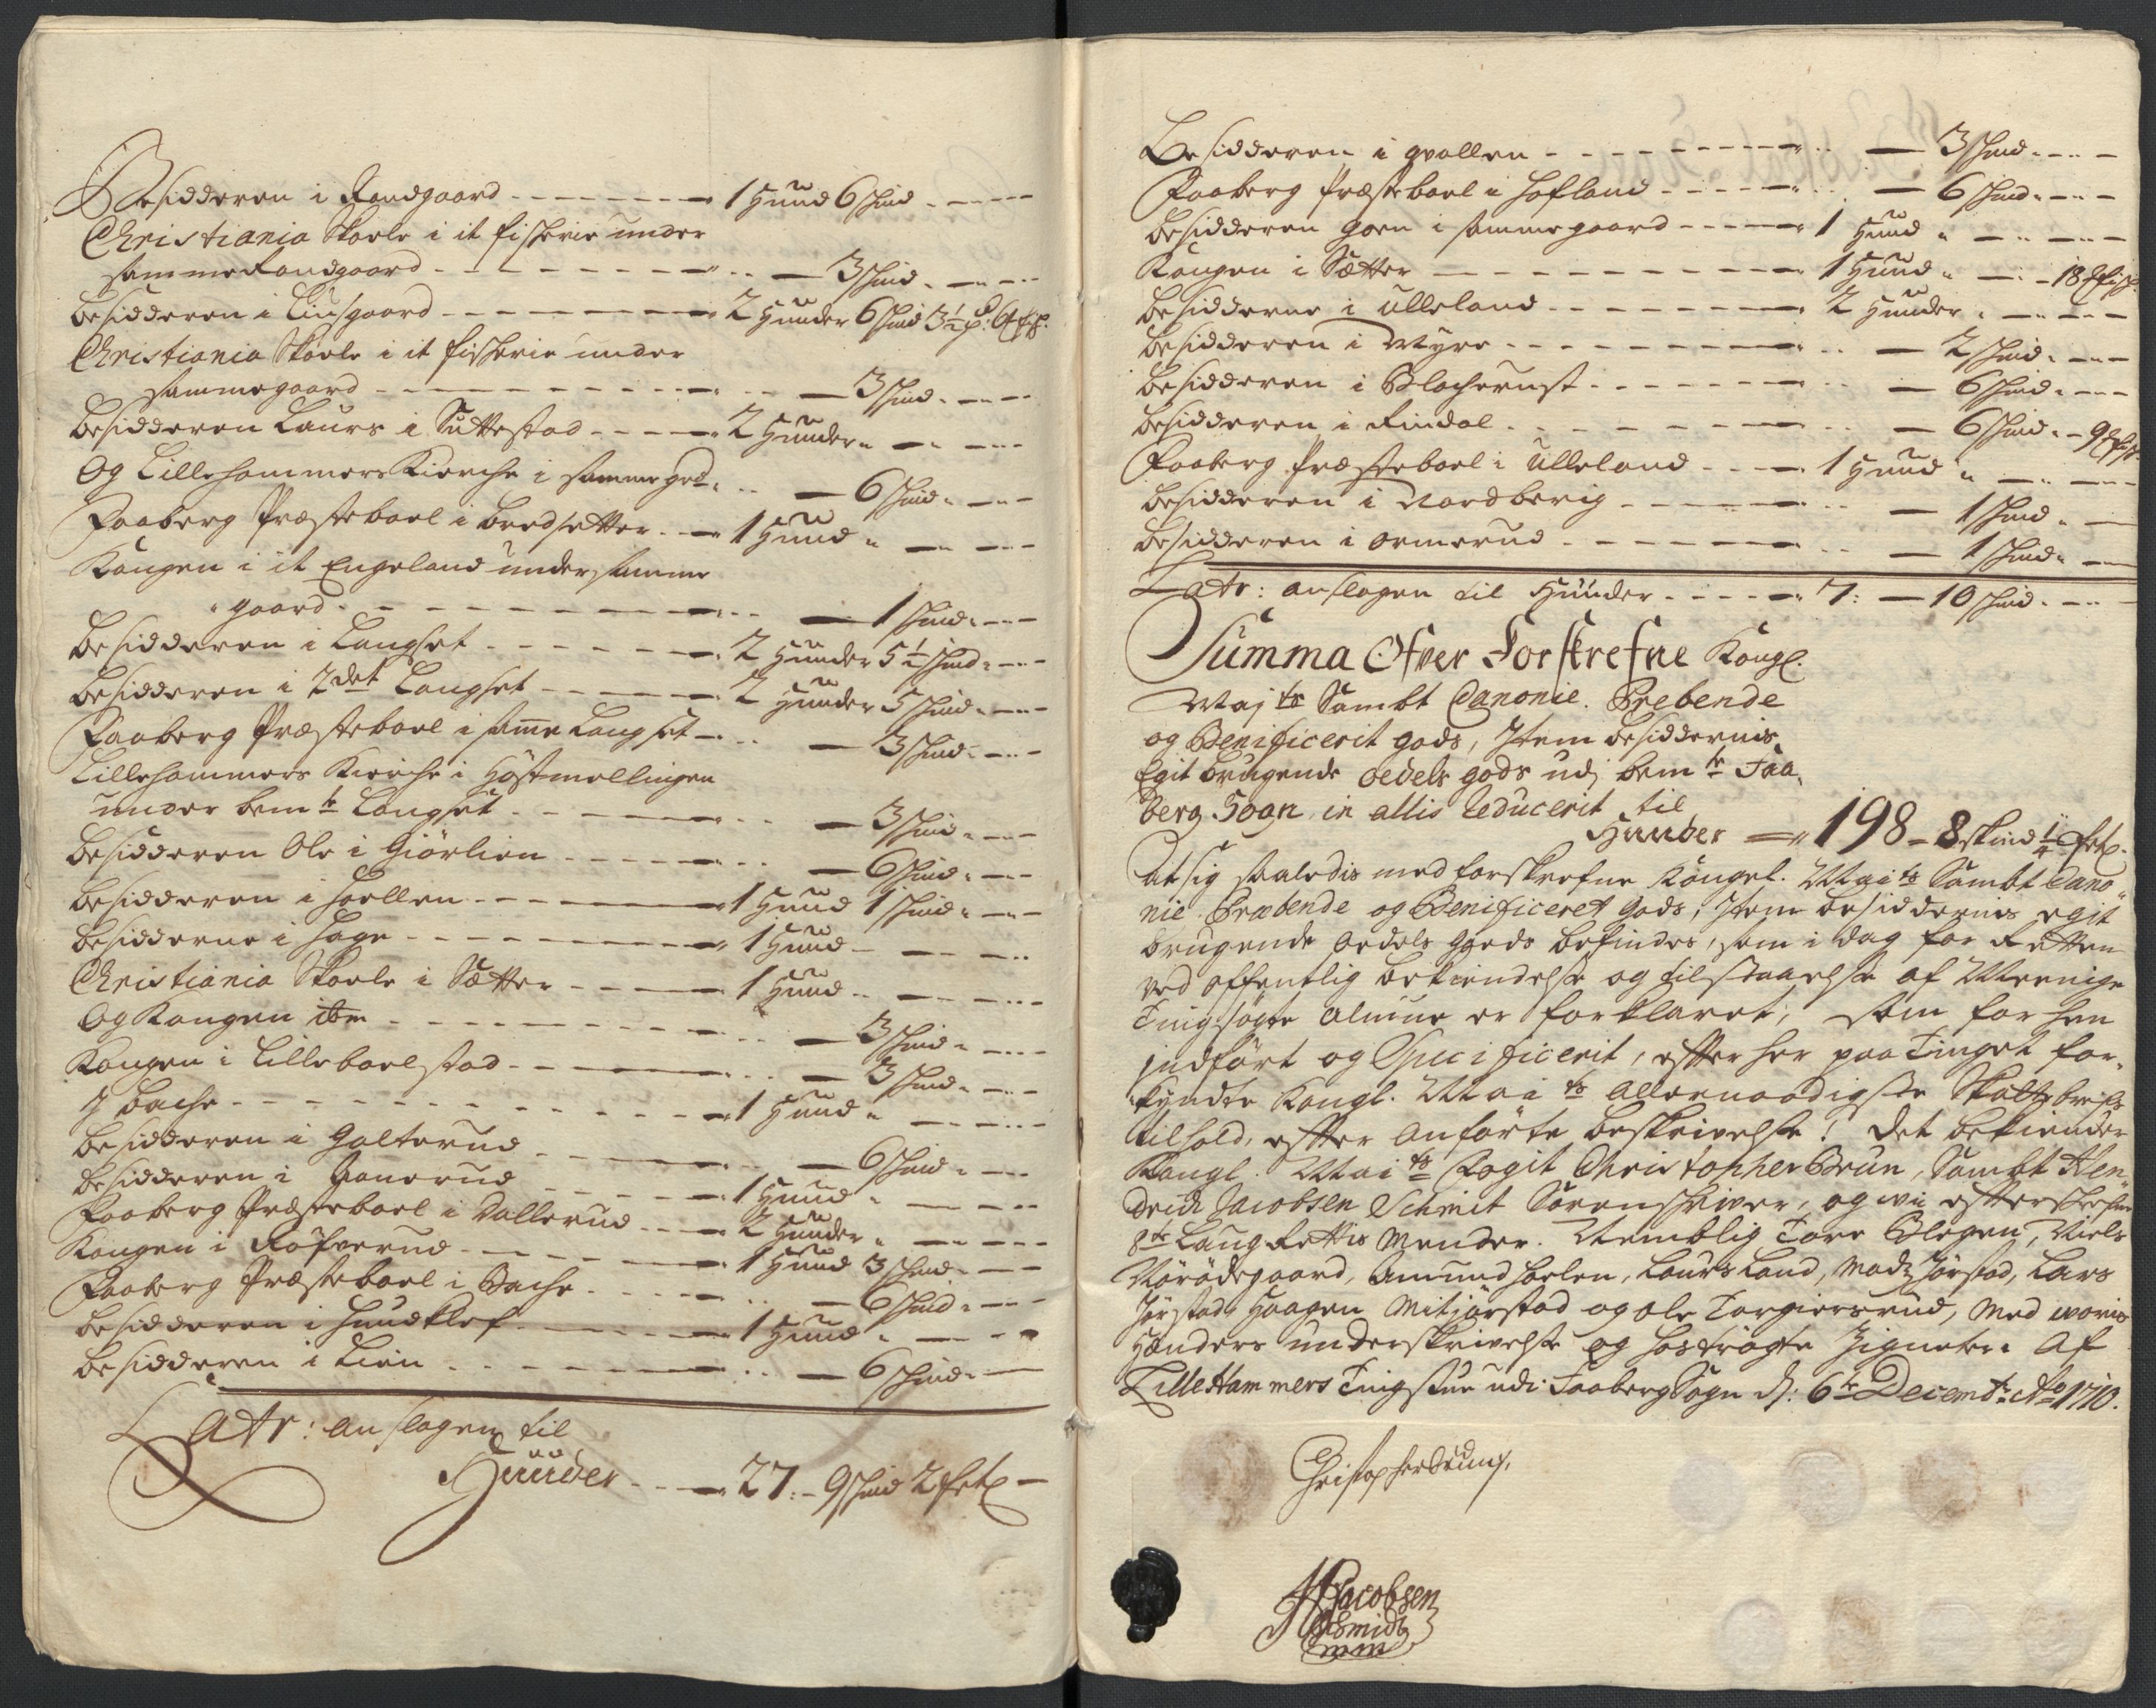 Besidderen i Randgaard - - - 1 Hund 6 Skind - - -
Christiania Skoele i it fischerie under
samme Randgaard - - - 3 Skind - - -
Besidderen i Liusgaard - - - 2 Hunder 6 Skind 3½
Christiania Skoele i it fischerie under
samme gaard - - - 3 Skind - - -
Besidderen Laurs i Suttestad - - - 2 Hunder - - -
Og Lillehammers Kierche i samme - - - 6 Skind - - -
Faaberg Præsteboel i Bredsetter - - - 1 Hund - - -
Kongen i it Engeland under samme
gaard - - - 1 Skind - - -
Besidderen i Langset - - - 2 Hunder 5½ Skind - - -
Besidderen i 2det Langset - - - 2 Hunder 5 Skind - - -
Faaberg Præsteboel i samme Langset - - - 3 Skind - - -
Lillehammers Kierche i Høstmellingen
under bemte Langset - - - 3 Skind - - -
Besidderen Ole i Giørlien - - - 6 Skind - - -
Besidderen i Hoellen - - - 1 Hund 1 Skind - - -
Besidderne i Hage - - - 1 Hund - - -
Christiania Skoele i Sætter - - - 1 Hund - - -
Og Kongen ibm - - - 3 Skind - - -
Kongen i Lilleboelstad - - - 3 Skind - - -
J Bache - - - 1 Hund - - -
Besidderen i Golterud - - - 6 Skind - - -
Besidderen i - - - 1 Hund - - -
Faaberg Præsteboel i Dallerud - - - 2 Hunder - - -
Kongen i Røfverud - - - 1 Hund 3 Skind - - -
Faaberg Præsteboel i Bache - - - 6 Skind - - -
Besidderen i Hundklef - - - 1 Hund - - -
Besidderen i Lien - - - 6 Skind - -
Latr: anslagen til
Hunder - - - 27: - 9 Skind 2
Besidderen i Qvallen - - - 3 Skind - - -
Faaberg Præsteboel i Hofland - - - 6 Skind - - -
Besidderen Goen i samme gaard - - - 1 Hund - - -
Kongen i Sætter - - - 1 Hund - - 18
Besidderne i Ulleland - - - 2 Hunder - - -
Besidderen i Myre - - - 2 Skind - - -
Besidderen i Blacherust - - - 6 Skind - - -
Besidderen i Rindal - - - 6 Skind - - 9
Faaberg Præsteboel i Ulleland - - - 1 Hund - - -
Besidderen i Nordberig - - - 1 Skind - -
Besidderen i Ormerud - - - 1 Skind - -
Latr: anslagen til Hunder - - - 7: - 10 Skind - - -
Summa Ofver Forskrefne Kongl.
Majts Sambt Canonie. Prebende
og Benificerit gods, Item besiddernis
Egit brugende oedels gods udj bemte Faa,
berg Sogn, in allis reducerit til
Hunder - 198 - 8 skind ¼
at sig saaledis med forskrefne Kongel. Maits Sambt Cano
nie Præbende og Benificeret Gods, Item besiddernis egit
brugende oedels goeds befindes, som i dag for Retten
ved offentlig bekiendelse og tilstaaelse af Meenige
Tingsøgte Almue er forklaret, som for hen
indført og Specificerit, efter her paa Tinget for,
kyndte Kongl. Maits allernaadigste Skattebrefs
tilhold, efter anførte beskrivelse! Det bekiender
Kongl. Maits Fogit Christopher Brun, Sambt Hen
drich Jacobsen Schmit Sorenskriver, og wi efterskrefne
8te Laug Rettis Mender. Nemblig Tore Blegen, Niels
Nørødegaard, Amund Hoelen, Laurs Land, Madz Jørstad, Lars
Jørstad, Haagen Mitjørstad og Ole Torgiersrud, med voris
Hænders underskrivelse og hostrøgte Zigneter. Af
Lille Hammers Tingstue udi Faaberg Sogn d: 6te Decembr Ao 1710.
Christopher Brun
HJacobsen
Schmidt
mm